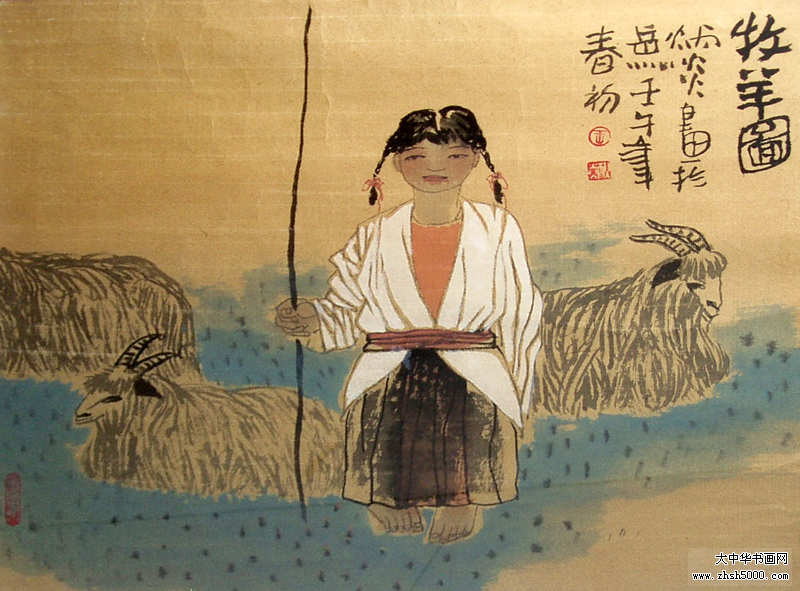 牧羊圖
炳炎畫於
壬午年
春初
大中华书画网
www.zhsh5000.com